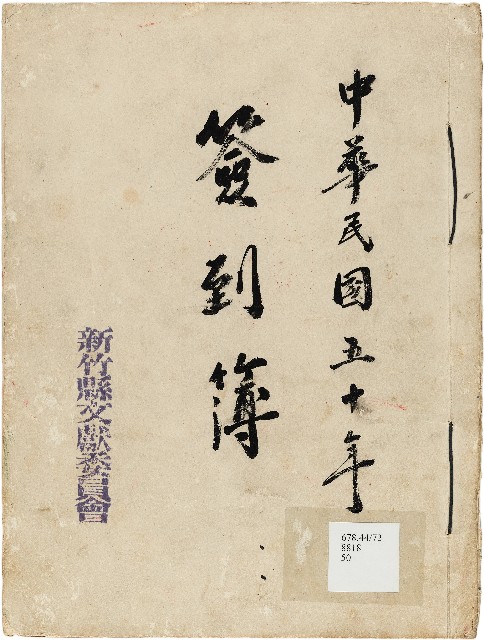 中華民國五十年
簽到簿
新竹縣文獻委員會
678.44/72
8818
50